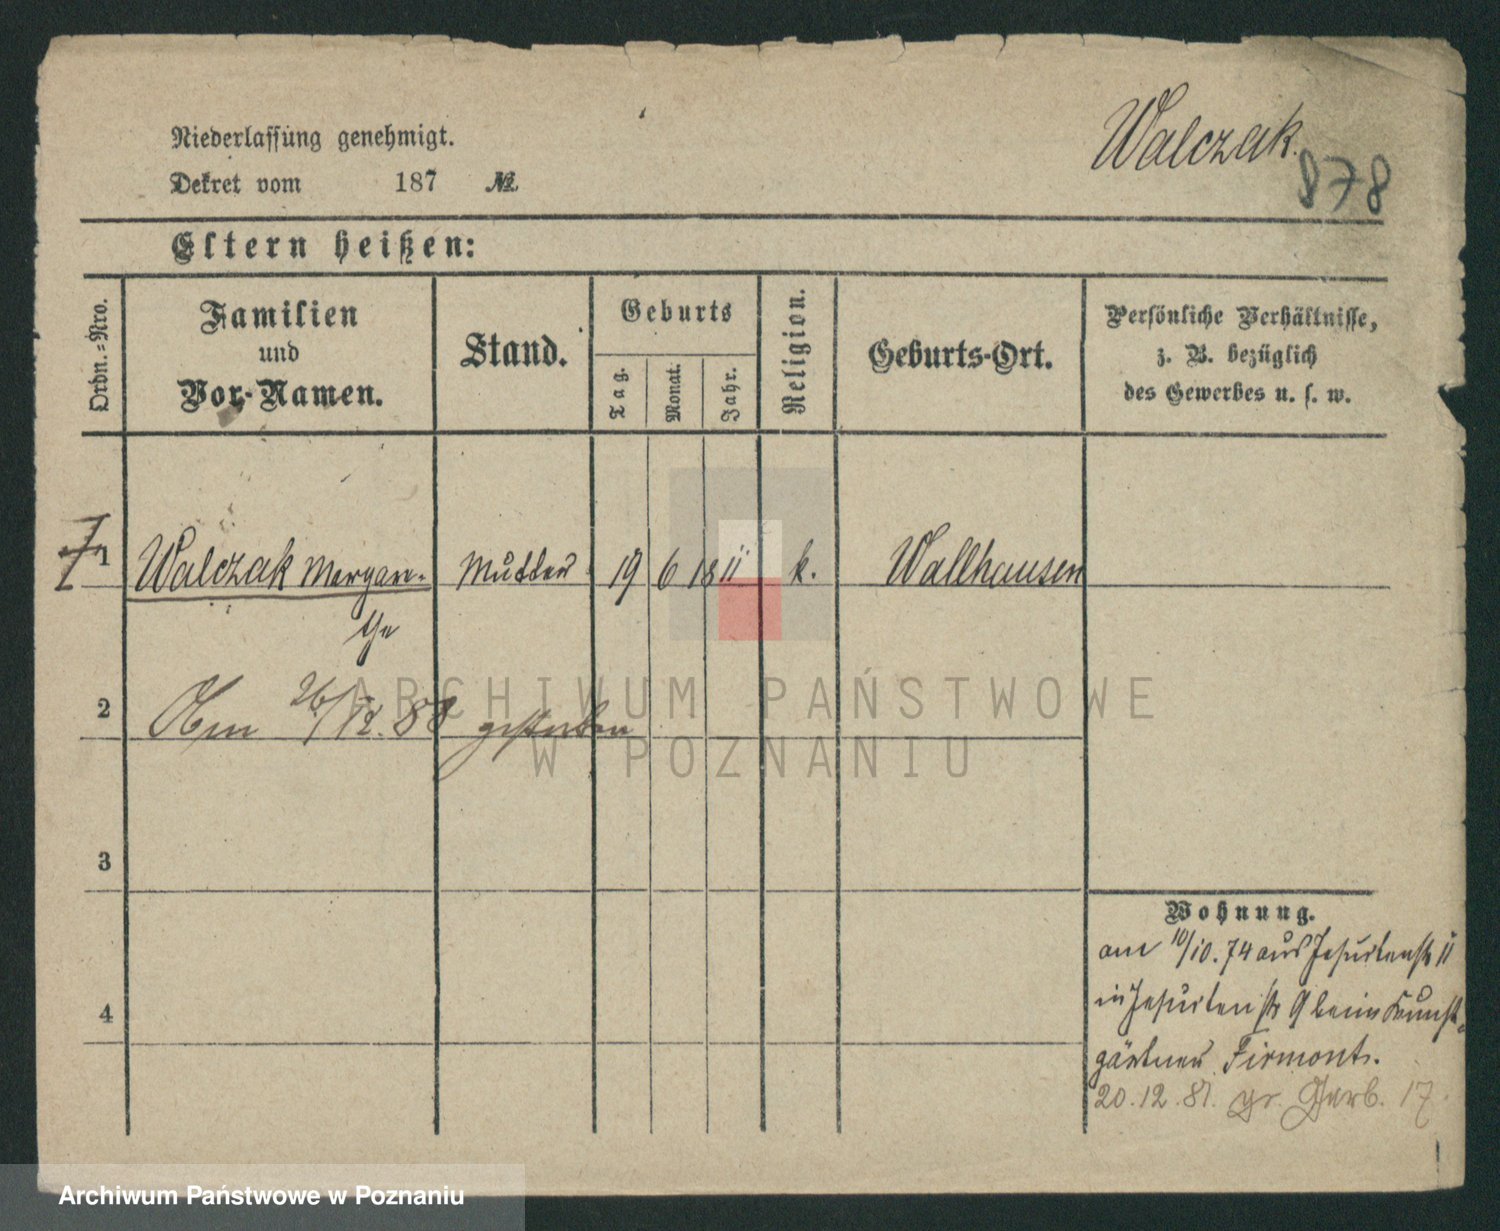 Walczak.
878
Niederlassung genehmigt.
Dekret vom 187 №
Eltern heißen:
Ordn.-Nro.
Familien
und
Vor-Namen.
Stand.
Geburts
Tag.
Monat.
Jahr.
Religion.
Geburts-Ort.
Persönliche Verhältnisse,
z. B. bezüglich
des Gewerbes u. s. w.
1 Walczak Margare- Mutter 19 6 1811 k. Wallhausen
the
2
26/12. 88 gestorben
3
4
Wohnung.
am 10/10. 74 aus Jesuitenstr 11
in Jesuitenstr 9 beim Kunst-
gärtner Firmont.
20.12.81. gr. Gerb. 17.
ARCHIWUM PAŃSTWOWE
W POZNANIU
Archiwum Państwowe w Poznaniu